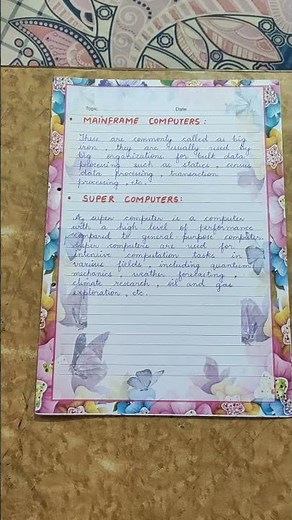 Topic Date
• MAINFRAME COMPUTERS :
These are commonly called as big
iron , they are usually used by
big organizations for bulk data
processing such as statics , census
data processing , transaction
processing , etc.
• SUPER COMPUTERS:
A super computer is a computer
with a high level of performance
compared to general purpose computer.
Super computers are used for
intensive computation tasks in
various fields , including quantum
mechanics , weather forecasting ,
climate research , oil and gas
exploration , etc.